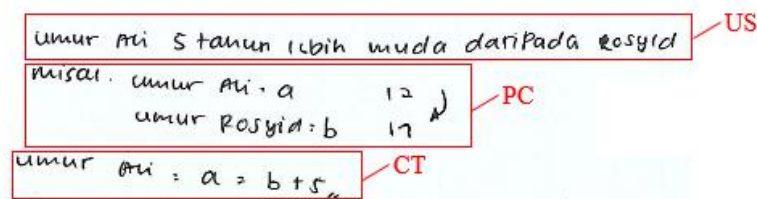 umur Ali 5 tahun lebih muda daripada Rosyid US
misal. umur Ali = a 12
umur Rosyid = b 17 PC
umur Ali = a = b + 5 CT